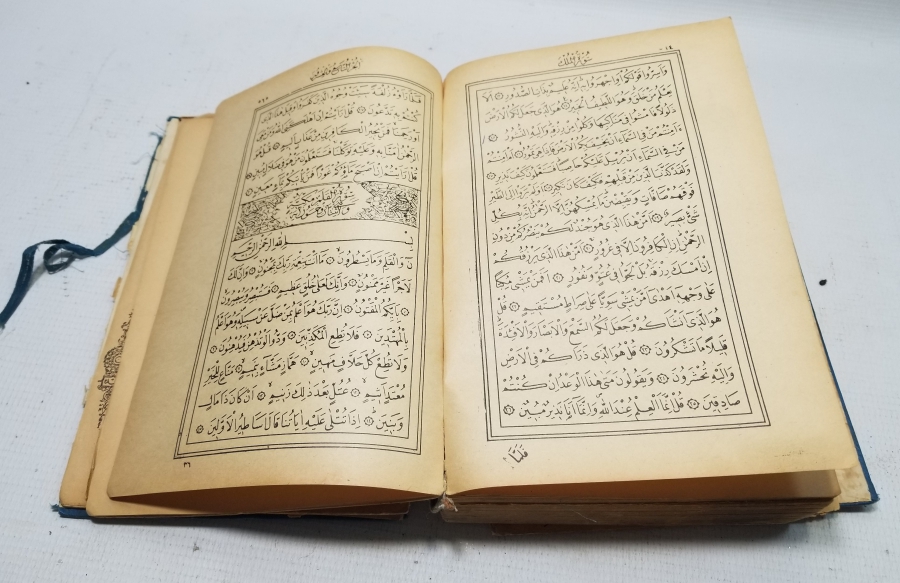 سُورَةُ الْمُلْكِ
وَاَسِرُّوا قَوْلَكُمْ اَوِ اجْهَرُوا بِهِ اِنَّهُ عَلِيمٌ بِذَاتِ الصُّدُورِ ۝ اَلَا
يَعْلَمُ مَنْ خَلَقَ وَهُوَ اللَّطِيفُ الْخَبِيرُ ۝ هُوَ الَّذِي جَعَلَ لَكُمُ الْاَرْضَ
ذَلُولًا فَامْشُوا فِي مَنَاكِبِهَا وَكُلُوا مِنْ رِزْقِهِ وَاِلَيْهِ النُّشُورُ ۝
ءَاَمِنْتُمْ مَنْ فِي السَّمَاءِ اَنْ يَخْسِفَ بِكُمُ الْاَرْضَ فَاِذَا هِيَ تَمُورُ ۝ اَمْ اَمِنْتُمْ
مَنْ فِي السَّمَاءِ اَنْ يُرْسِلَ عَلَيْكُمْ حَاصِبًا فَسَتَعْلَمُونَ كَيْفَ نَذِيرِ ۝
وَلَقَدْ كَذَّبَ الَّذِينَ مِنْ قَبْلِهِمْ فَكَيْفَ كَانَ نَكِيرِ ۝ اَوَلَمْ يَرَوْا اِلَى الطَّيْرِ
فَوْقَهُمْ صَافَّاتٍ وَيَقْبِضْنَ مَا يُمْسِكُهُنَّ اِلَّا الرَّحْمٰنُ اِنَّهُ بِكُلِّ
شَيْءٍ بَصِيرٌ ۝ اَمَّنْ هٰذَا الَّذِي هُوَ جُنْدٌ لَكُمْ يَنْصُرُكُمْ مِنْ دُونِ
الرَّحْمٰنِ اِنِ الْكَافِرُونَ اِلَّا فِي غُرُورٍ ۝ اَمَّنْ هٰذَا الَّذِي يَرْزُقُكُمْ
اِنْ اَمْسَكَ رِزْقَهُ بَلْ لَجُّوا فِي عُتُوٍّ وَنُفُورٍ ۝ اَفَمَنْ يَمْشِي مُكِبًّا
عَلٰى وَجْهِهِ اَهْدٰى اَمَّنْ يَمْشِي سَوِيًّا عَلٰى صِرَاطٍ مُسْتَقِيمٍ ۝ قُلْ
هُوَ الَّذِي اَنْشَاَكُمْ وَجَعَلَ لَكُمُ السَّمْعَ وَالْاَبْصَارَ وَالْاَفْئِدَةَ
قَلِيلًا مَا تَشْكُرُونَ ۝ قُلْ هُوَ الَّذِي ذَرَاَكُمْ فِي الْاَرْضِ
وَاِلَيْهِ تُحْشَرُونَ ۝ وَيَقُولُونَ مَتٰى هٰذَا الْوَعْدُ اِنْ كُنْتُمْ
صَادِقِينَ ۝ قُلْ اِنَّمَا الْعِلْمُ عِنْدَ اللّٰهِ وَاِنَّمَا اَنَا نَذِيرٌ مُبِينٌ ۝
فَلَمَّا
فَلَمَّا رَاَوْهُ زُلْفَةً سِيئَتْ وُجُوهُ الَّذِينَ كَفَرُوا وَقِيلَ هٰذَا الَّذِي
كُنْتُمْ بِهِ تَدَّعُونَ ۝ قُلْ اَرَاَيْتُمْ اِنْ اَهْلَكَنِيَ اللّٰهُ وَمَنْ مَعِيَ
اَوْ رَحِمَنَا فَمَنْ يُجِيرُ الْكَافِرِينَ مِنْ عَذَابٍ اَلِيمٍ ۝ قُلْ هُوَ
الرَّحْمٰنُ اٰمَنَّا بِهِ وَعَلَيْهِ تَوَكَّلْنَا فَسَتَعْلَمُونَ مَنْ هُوَ فِي ضَلَالٍ مُبِينٍ ۝
قُلْ اَرَاَيْتُمْ اِنْ اَصْبَحَ مَاؤُكُمْ غَوْرًا فَمَنْ يَأْتِيكُمْ بِمَاءٍ مَعِينٍ ۝
سُورَةُ الْقَلَمِ مَكِّيَّةٌ
بِسْمِ اللّٰهِ الرَّحْمٰنِ الرَّحِيمِ
نٓ وَالْقَلَمِ وَمَا يَسْطُرُونَ ۝ مَا اَنْتَ بِنِعْمَةِ رَبِّكَ بِمَجْنُونٍ ۝ وَاِنَّ لَكَ
لَاَجْرًا غَيْرَ مَمْنُونٍ ۝ وَاِنَّكَ لَعَلٰى خُلُقٍ عَظِيمٍ ۝ فَسَتُبْصِرُ وَيُبْصِرُونَ
۝ بِاَيِّكُمُ الْمَفْتُونُ ۝ اِنَّ رَبَّكَ هُوَ اَعْلَمُ بِمَنْ ضَلَّ عَنْ سَبِيلِهِ وَهُوَ اَعْلَمُ
بِالْمُهْتَدِينَ ۝ فَلَا تُطِعِ الْمُكَذِّبِينَ ۝ وَدُّوا لَوْ تُدْهِنُ فَيُدْهِنُونَ ۝
وَلَا تُطِعْ كُلَّ حَلَّافٍ مَهِينٍ ۝ هَمَّازٍ مَشَّاءٍ بِنَمِيمٍ ۝ مَنَّاعٍ لِلْخَيْرِ
مُعْتَدٍ اَثِيمٍ ۝ عُتُلٍّ بَعْدَ ذٰلِكَ زَنِيمٍ ۝ اَنْ كَانَ ذَا مَالٍ
وَبَنِينَ ۝ اِذَا تُتْلٰى عَلَيْهِ اٰيَاتُنَا قَالَ اَسَاطِيرُ الْاَوَّلِينَ ۝